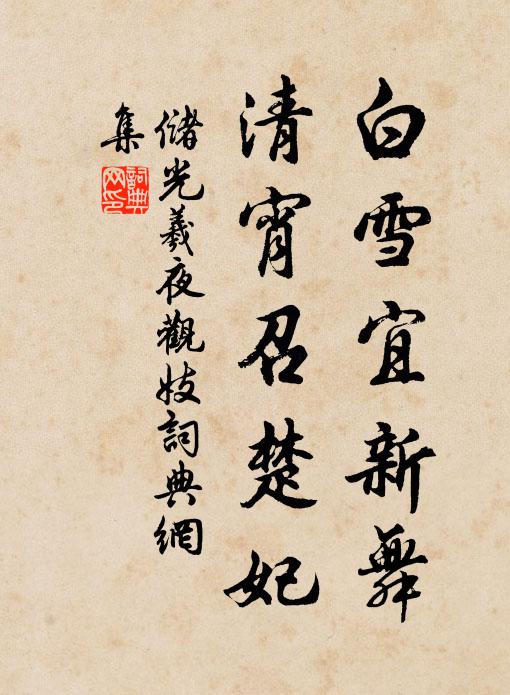 白雪宜新舞
清宵召楚妃
儲光羲夜觀妓詞典網
集
詞典網印